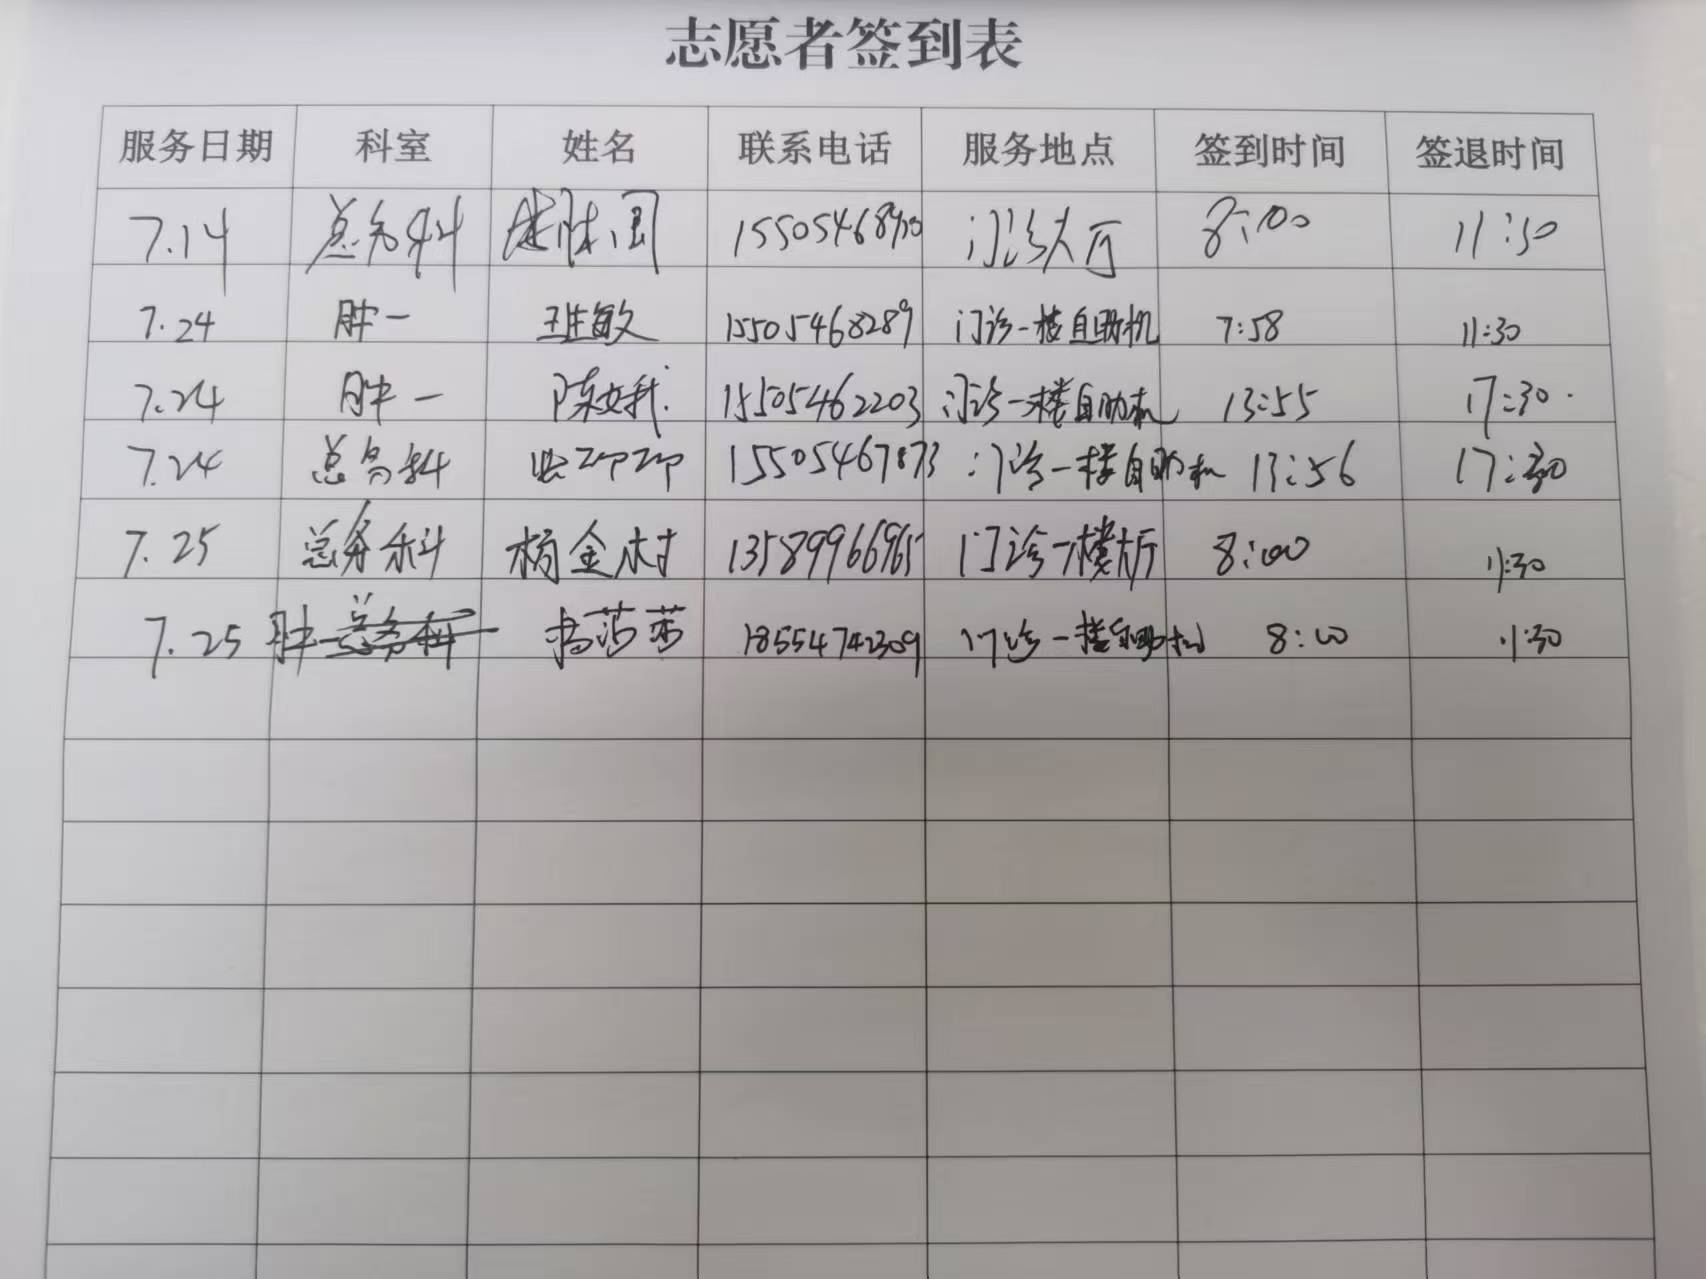 志愿者签到表
服务日期 科室 姓名 联系电话 服务地点 签到时间 签退时间
7.14 总务科 门诊大厅 8:00 11:30
7.24 肿一 王胜敏 15505468289 门诊一楼自助机 7:58 11:30
7.24 肿一 15505462203 门诊一楼自助机 13:55 17:30
7.24 总务科 15505467873 门诊一楼自助机 13:56 17:30
7.25 总务科 杨金村 门诊一楼大厅 8:00 11:30
7.25 肿一 莎莎 18554742309 门诊一楼自助机 8:00 11:30